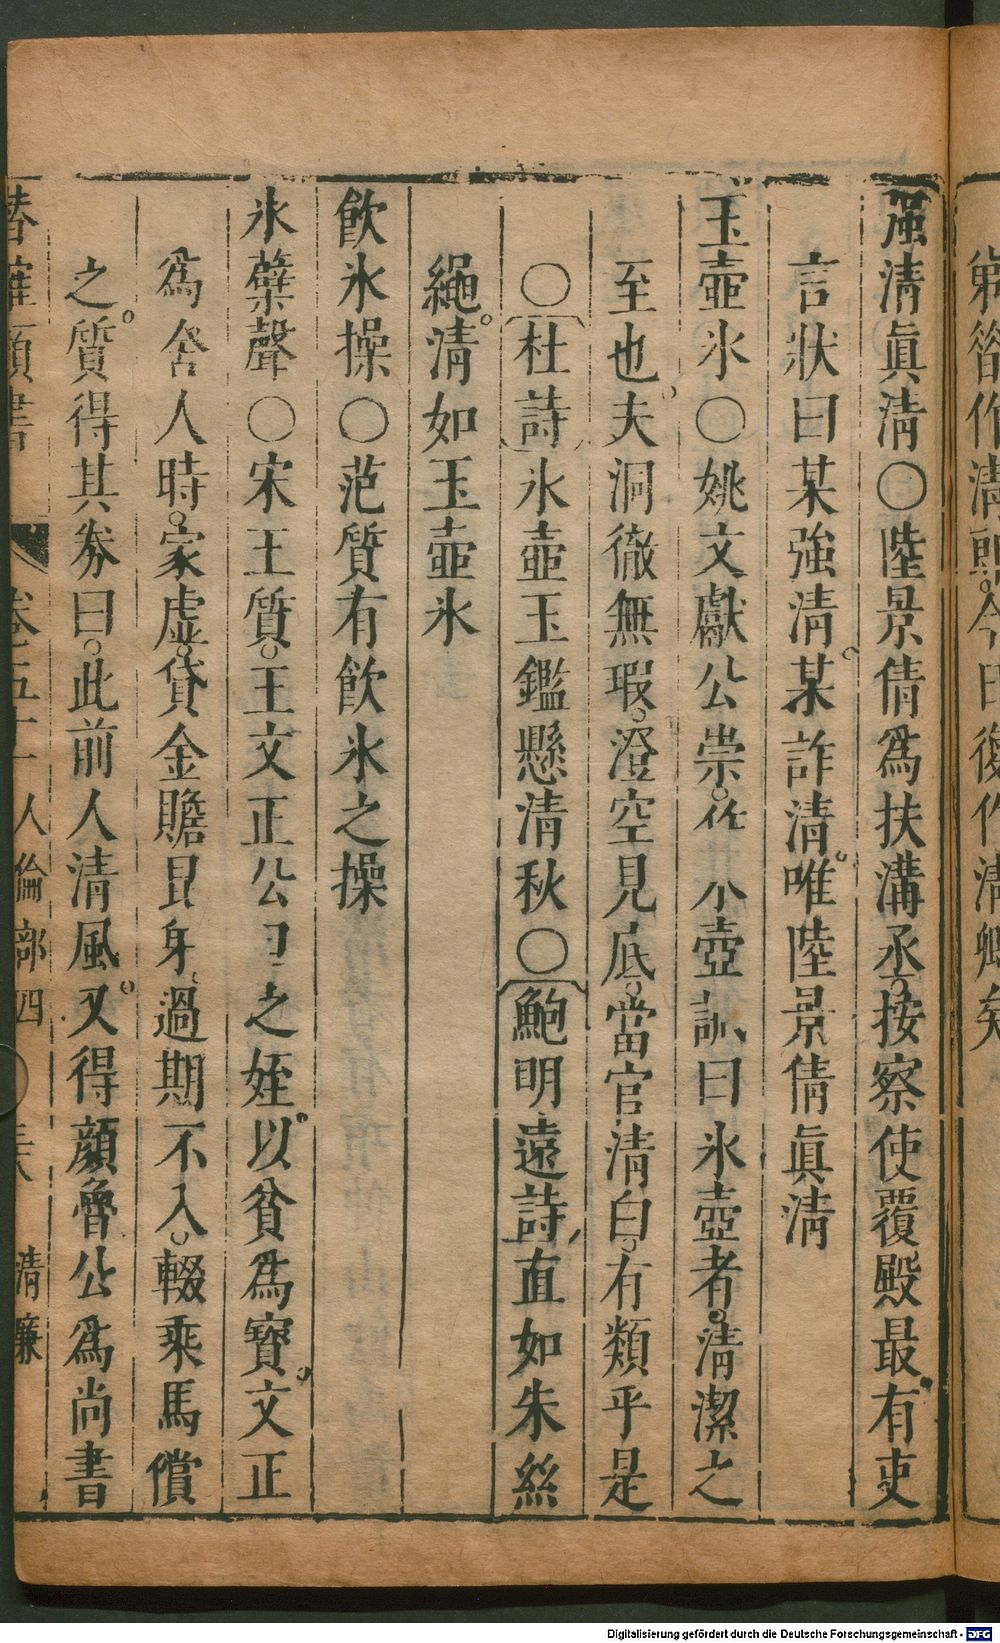 第卻作清郎今日復作清卿矣
强清眞清○陸景倩爲扶溝丞按察使覆殿最有吏
言狀曰某強清某詐清唯陸景倩眞清
玉壺氷○姚文獻公崇作 氷壺 曰氷壺者清潔之
至也夫洞徹無瑕澄空見底當官清白有類乎是
○杜詩氷壺玉鑑懸清秋○鮑明遠詩直如朱絲
繩清如玉壺氷
飮氷操○范質有飮氷之操
氷蘗聲○宋王質王文正公 之姪以貧爲寳文正
爲舍人時家虛貸金贍昆弟過期不入輟乘馬償
之質得其劵曰此前人清風又得顔魯公爲尚書
類書 人倫部四 清廉
Digitalisierung gefördert durch die Deutsche Forschungsgemeinschaft - DFG